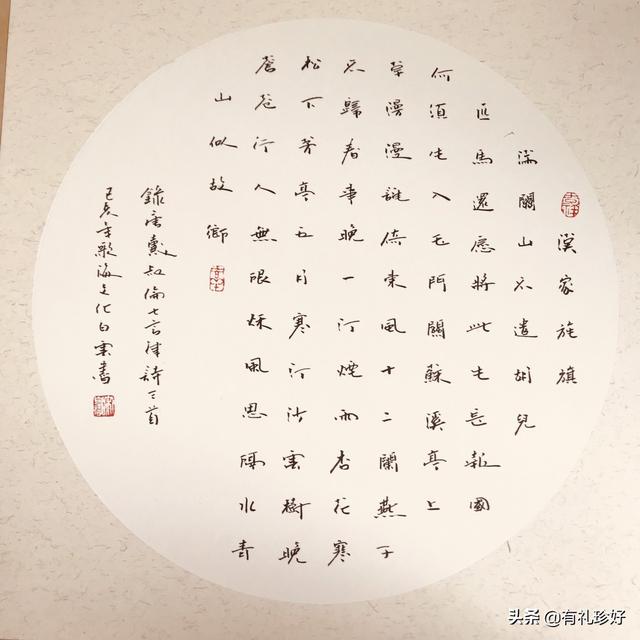 漢家旌旗
滿關山不遣胡兒
匹馬還應將此生長報國
何須生入玉門關蘇溪亭上
草漫漫誰倚東風十二闌燕子
不歸春事晚一汀煙雨杏花寒
松下茅亭五月寒汀沙雲樹晚
蒼蒼行人無限秋風思隔水青
山似故鄉
錄唐戴叔倫七言律詩三首
己亥年海文化白雲書
头条 @有礼珍好